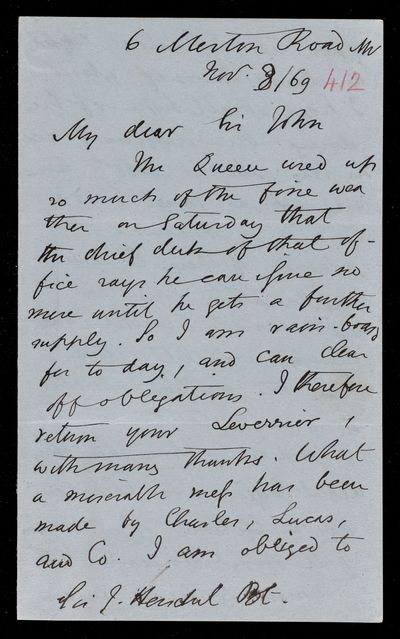 6 Merton Road NW
Nov. 8/69 412
My dear Sir John
The Queen used up
so much of the fine wea
ther on Saturday that
the chief clerk of that of-
fice says he can give no
more until he gets a further
supply. So I am rain-board
for to day, and can clear
off obligations. I therefore
return your Leverrier,
with many thanks. What
a miserable mess has been
made by Charles, Lucas,
and Co. I am obliged to
Sir J. Herschel Bt.